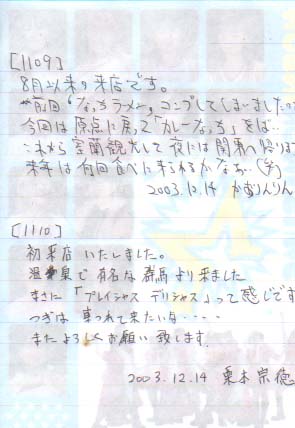 [1109]
8月以来の来店です。
前回「なっちラーメン」コンプしてしまいましたの
今回は原点に戻って「カレーなっち」をば‥
これから室蘭観光して夜には関東へ帰りま
来年は何回食べに来られるかなぁ‥(笑)
2003.12.14 かおりんりん
[1110]
初来店いたしました。
温泉で有名な群馬より来ました
まさに「プレイシャス デリシャス」って感じです
つぎは 来たいな‥‥
またよろしくお願い致します。
2003.12.14 栗本宗徳